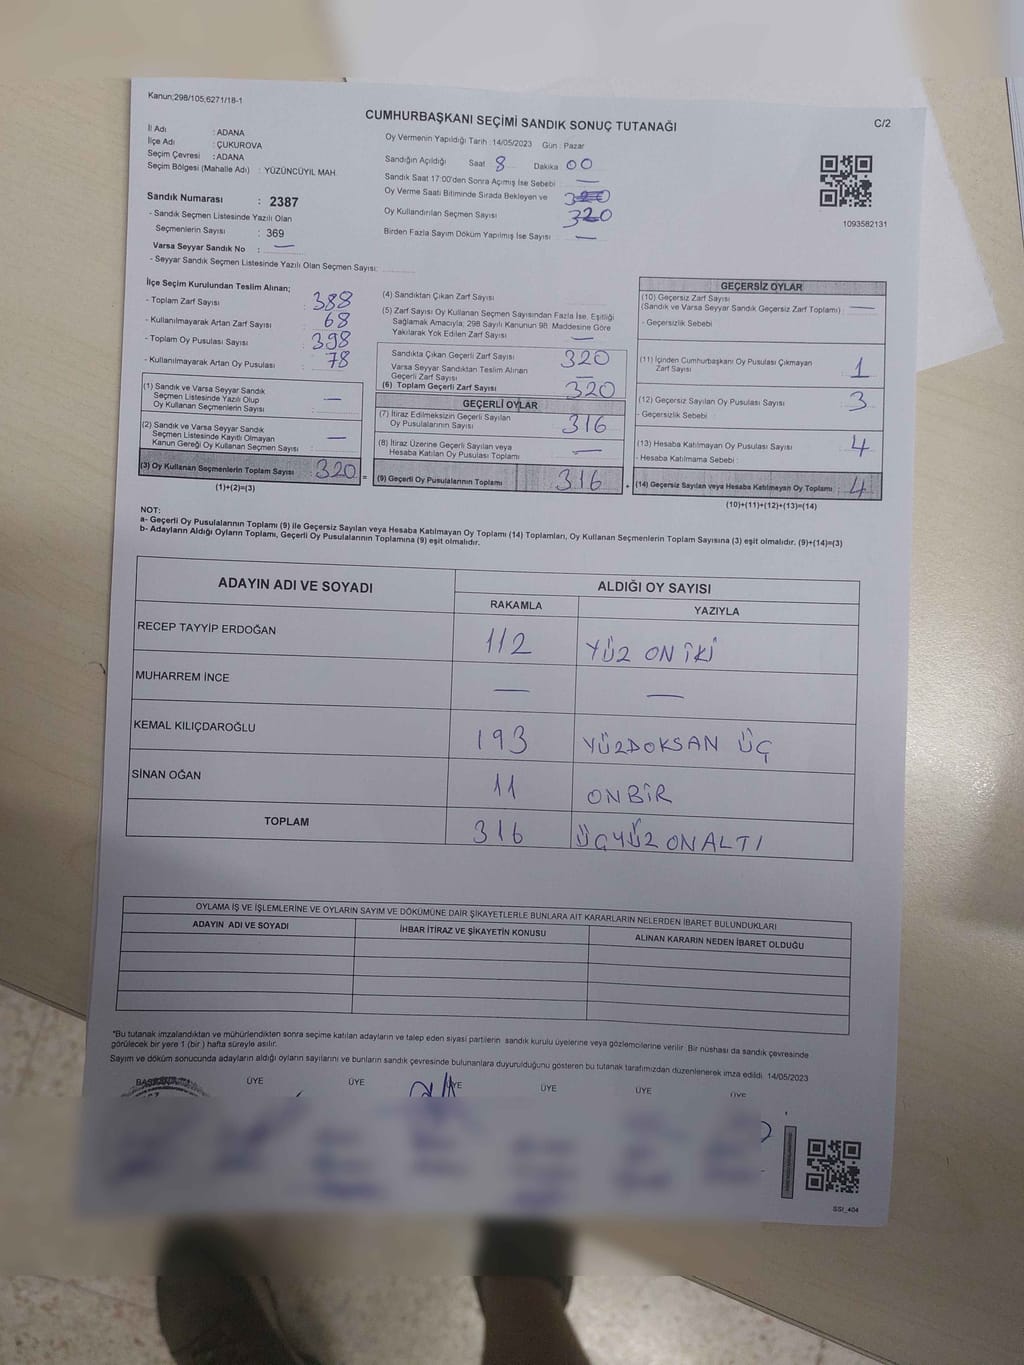 Kanun;298/105,6271/18-1
CUMHURBAŞKANI SEÇİMİ SANDIK SONUÇ TUTANAĞI
C/2
İl Adı : ADANA
İlçe Adı : ÇUKUROVA
Seçim Çevresi : ADANA
Seçim Bölgesi (Mahalle Adı) : YÜZÜNCÜYIL MAH.
Sandık Numarası : 2387
- Sandık Seçmen Listesinde Yazılı Olan
Seçmenlerin Sayısı : 369
Varsa Seyyar Sandık No : —
- Seyyar Sandık Seçmen Listesinde Yazılı Olan Seçmen Sayısı:
Oy Vermenin Yapıldığı Tarih : 14/05/2023 Gün : Pazar
Sandığın Açıldığı Saat 8 Dakika 00
Sandık Saat 17:00'den Sonra Açımış İse Sebebi : —
Oy Verme Saati Bitiminde Sırada Bekleyen ve
Oy Kullandırılan Seçmen Sayısı 320
Birden Fazla Sayım Döküm Yapılmış İse Sayısı : —
1093582131
İlçe Seçim Kurulundan Teslim Alınan;
- Toplam Zarf Sayısı : 388
- Kullanılmayarak Artan Zarf Sayısı : 68
- Toplam Oy Pusulası Sayısı : 398
- Kullanılmayarak Artan Oy Pusulası : 78
(1) Sandık ve Varsa Seyyar Sandık
Seçmen Listesinde Yazılı Olup
Oy Kullanan Seçmenlerin Sayısı : —
(2) Sandık ve Varsa Seyyar Sandık
Seçmen Listesinde Kayıtlı Olmayan
Kanun Gereği Oy Kullanan Seçmen Sayısı : —
(3) Oy Kullanan Seçmenlerin Toplam Sayısı : 320
(1)+(2)=(3)
(4) Sandıktan Çıkan Zarf Sayısı :
(5) Zarf Sayısı Oy Kullanan Seçmen Sayısından Fazla İse, Eşitliği
Sağlamak Amacıyla; 298 Sayılı Kanunun 98. Maddesine Göre
Yakılarak Yok Edilen Zarf Sayısı : —
Sandıkta Çıkan Geçerli Zarf Sayısı : 320
Varsa Seyyar Sandıktan Teslim Alınan
Geçerli Zarf Sayısı : —
(6) Toplam Geçerli Zarf Sayısı 320
GEÇERLİ OYLAR
(7) İtiraz Edilmeksizin Geçerli Sayılan
Oy Pusulalarının Sayısı : 316
(8) İtiraz Üzerine Geçerli Sayılan veya
Hesaba Katılan Oy Pusulası Toplamı : —
= (9) Geçerli Oy Pusulalarının Toplamı 316 +
GEÇERSİZ OYLAR
(10) Geçersiz Zarf Sayısı
(Sandık ve Varsa Seyyar Sandık Geçersiz Zarf Toplamı) : —
- Geçersizlik Sebebi :
(11) İçinden Cumhurbaşkanı Oy Pusulası Çıkmayan
Zarf Sayısı : 1
(12) Geçersiz Sayılan Oy Pusulası Sayısı : 3
- Geçersizlik Sebebi :
(13) Hesaba Katılmayan Oy Pusulası Sayısı : 4
- Hesaba Katılmama Sebebi :
(14) Geçersiz Sayılan veya Hesaba Katılmayan Oy Toplamı : 4
(10)+(11)+(12)+(13)=(14)
NOT:
a- Geçerli Oy Pusulalarının Toplamı (9) ile Geçersiz Sayılan veya Hesaba Katılmayan Oy Toplamı (14) Toplamları, Oy Kullanan Seçmenlerin Toplam Sayısına (3) eşit olmalıdır. (9)+(14)=(3)
b- Adayların Aldığı Oyların Toplamı, Geçerli Oy Pusulalarının Toplamına (9) eşit olmalıdır.
ADAYIN ADI VE SOYADI
ALDIĞI OY SAYISI
RAKAMLA YAZIYLA
RECEP TAYYİP ERDOĞAN 112 YÜZ ON İKİ
MUHARREM İNCE — —
KEMAL KILIÇDAROĞLU 193 YÜZDOKSAN ÜÇ
SİNAN OĞAN 11 ONBİR
TOPLAM 316 ÜÇYÜZ ONALTI
OYLAMA İŞ VE İŞLEMLERİNE VE OYLARIN SAYIM VE DÖKÜMÜNE DAİR ŞİKAYETLERLE BUNLARA AİT KARARLARIN NELERDEN İBARET BULUNDUKLARI
ADAYIN ADI VE SOYADI İHBAR İTİRAZ VE ŞİKAYETİN KONUSU ALINAN KARARIN NEDEN İBARET OLDUĞU
*Bu tutanak imzalandıktan ve mühürlendikten sonra seçime katılan adayların ve talep eden siyasi partilerin sandık kurulu üyelerine veya gözlemcilerine verilir. Bir nüshası da sandık çevresinde
görülecek bir yere 1 (bir) hafta süreyle asılır.
Sayım ve döküm sonucunda adayların aldığı oyların sayılarını ve bunların sandık çevresinde bulunanlara duyurulduğunu gösteren bu tutanak tarafımızdan düzenlenerek imza edildi. 14/05/2023
BAŞKAN ÜYE ÜYE ÜYE ÜYE ÜYE ÜYE
SSI_404